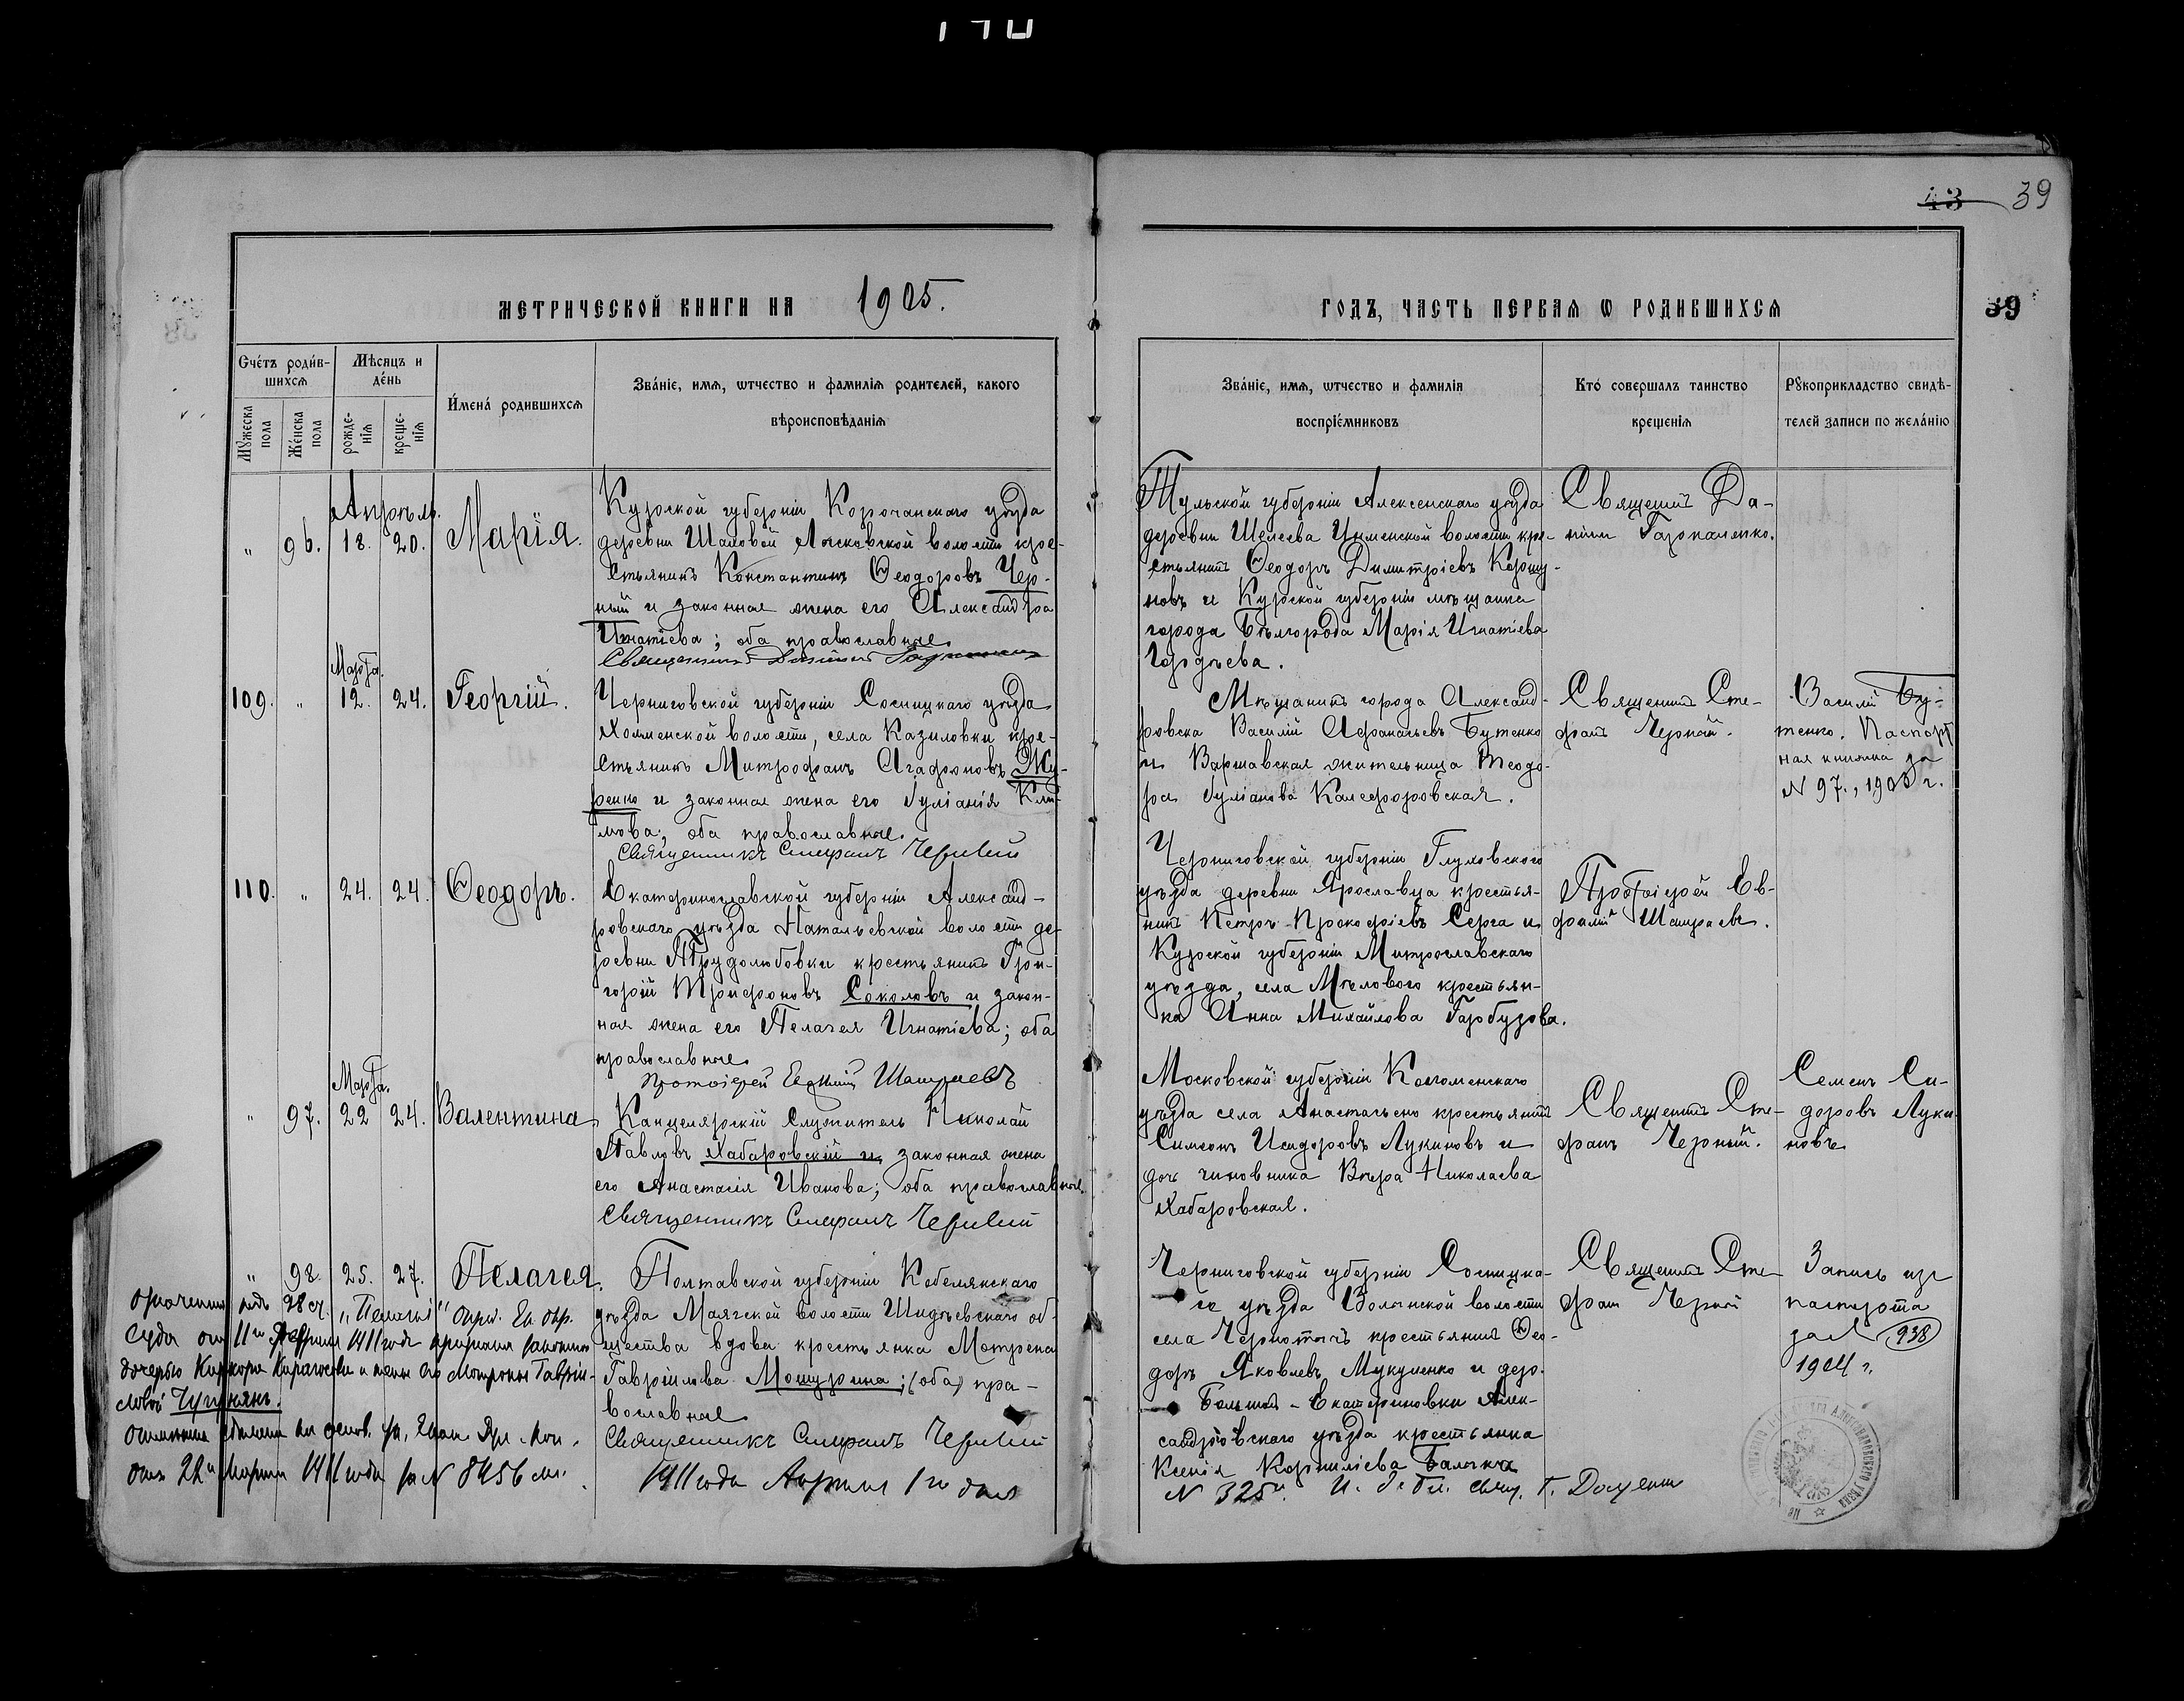 43 39
МЕТРИЧЕСКОЙ КНИГИ НА 1905.
ГОДЪ, ЧАСТЬ ПЕРВАЯ Ѡ РОДИВШИХСЯ
39
Счетъ родив-
шихся
Мѣсяцъ и
день
Имена родившихся
Званіе, имя, ѡтчество и фамилія родителей, какого
вѣроисповѣданія
Мужеска пола
Женска пола
рожде-
нія
креще-
нія
Званіе, имя, ѡтчество и фамилія
воспріемниковъ
Кто совершалъ таинство
крещенія
Рукоприкладство свидѣ-
телей записи по желанію
Апрѣль.
" 96. 18. 20. Марія.
Курской губерніи Корочанскаго уѣзда
деревни Шаховой волости кре-
стьянинъ Константинъ Ѳеодоровъ Чер-
ный и законная жена его Александра
Игнатіева; оба православные
Священникъ Даніилъ
Тульской губерніи Алексенскаго уѣзда
деревни Шелеева волости кре-
стьянинъ Ѳеодоръ Димитріевъ Коршу-
новъ и Курской губерніи мѣщанка
города Бѣлгорода Марія Игнатіева
Гордѣева.
Священникъ Да-
ніилъ
Марта.
109. " 12. 24. Георгій.
Черниговской губерніи Сосницкаго уѣзда
Холменской волости, села Казиловки кре-
стьянинъ Митрофанъ Агафоновъ Жу-
ренко и законная жена его Іуліанія Кли-
мова; оба православные.
Священникъ Стефанъ Черный
Мѣщанинъ города Александ-
ровска Василій Афанасьевъ Бутенко
и Варшавская жительница Теодо-
ра Іуліанова
Священникъ Сте-
фанъ Черный.
Василій Бу-
тенко. Паспорт
ная книжка за
N 97., 1905 г.
110. " 24. 24. Ѳеодоръ.
Екатеринославской губерніи Александ-
ровскаго уѣзда Натальевской волости де-
ревни Трудолюбовки крестьянинъ Гри-
горій Трифоновъ Соколовъ и закон-
ная жена его Пелагея Игнатіева; оба
православные
Протоіерей
Черниговской губерніи Глуховского
уѣзда деревни Ярославца крестья-
нинъ Петръ Прокофіевъ Серга и
Курской губерніи
уѣзда, села Мѣлового крестьян-
ка Анна Михайлова Гарбузова.
Протоіерей Ев-
Марта.
" 97. 22 24. Валентина
Канцелярскій Служитель Николай
Павловъ Хабаровскій и законная жена
его Анастасія Иванова; оба православные.
Священникъ Стефанъ Черный
Московской губерніи Коломенскаго
уѣзда села крестьянинъ
Симеонъ Исидоровъ Лукиновъ и
дочь чиновника Вѣра Николаева
Хабаровская.
Священникъ Сте-
фанъ Черный.
Семенъ Си-
доровъ Луки
новъ
" 98. 25. 27. Пелагея.
Полтавской губерніи Кобелякскаго
уѣзда Маячской волости об-
щества вдова крестьянка Матрена
Гавріилова Мошурина; (оба) пра-
вославные
Священникъ Стефанъ Черный
1911 года Апрѣля 1го дня
Черниговской губерніи Сосницка-
го уѣзда Волынской волости
села крестьянинъ Ѳео-
доръ Яковлевъ и дер.
Большой-Екатериновки Алек-
сандровскаго уѣзда крестьянка
Ксенія Корниліева
N 325.
Священникъ Сте-
фанъ Черный
Запись изъ
паспорта
за N 938
1904 г.
подъ 98 сч. „Пелагія" Окр.
Суда отъ 11го 1911 года признана законною
дочерью и жены его Матроны Гавріи-
ловой
отъ 22 Марта 1911 года за N 8456